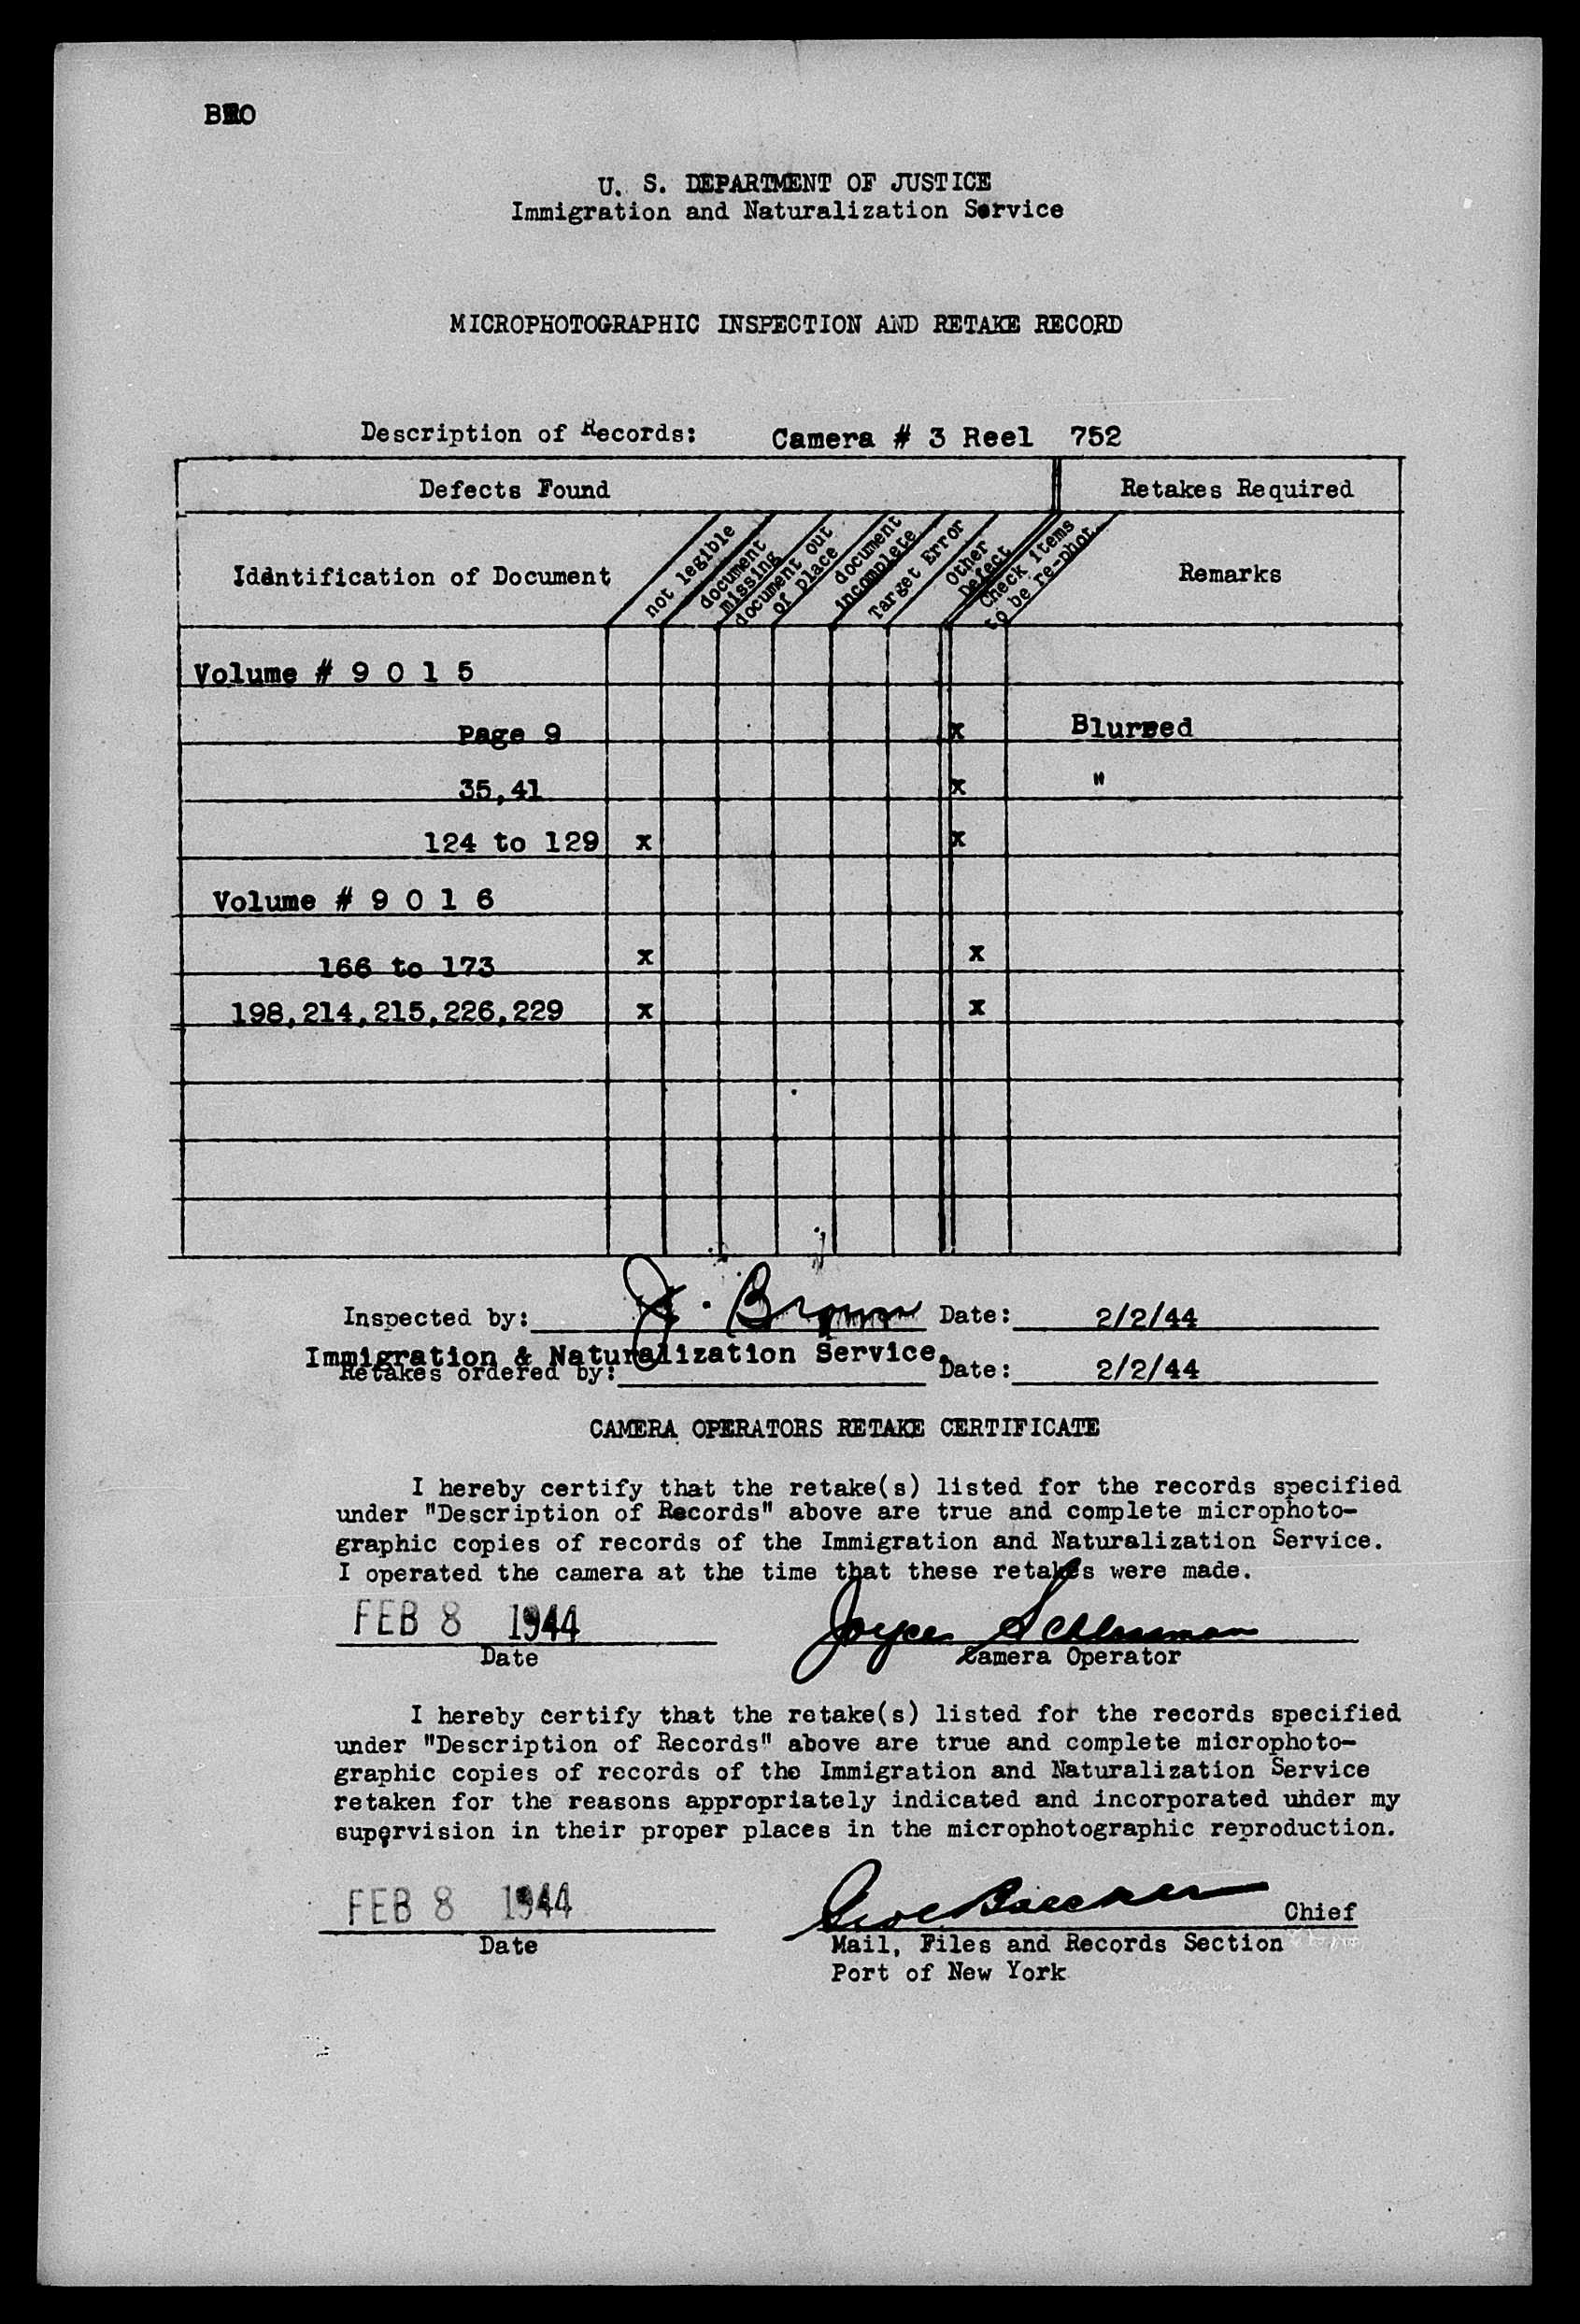 U. S. DEPARTMENT OF JUSTICE
Immigration and Naturalization Service
MICROPHOTOGRAPHIC INSPECTION AND RETAKE RECORD
Description of Records: Camera # 3 Reel 752
Defects Found Retakes Required
Identification of Document
not legible
document
missing
document out
of place
document
incomplete
Target Error
Other
Defect
Check items
to be re-phot.
Remarks
Volume # 9 0 1 5
Page 9 x Blurred
35,41 x "
124 to 129 x x
Volume # 9 0 1 6
166 to 173 x x
198,214,215,226,229 x x
Inspected by: J. Brown Date: 2/2/44
Immigration & Naturalization Service.
Retakes ordered by: Date: 2/2/44
CAMERA OPERATORS RETAKE CERTIFICATE
I hereby certify that the retake(s) listed for the records specified
under "Description of Records" above are true and complete microphoto-
graphic copies of records of the Immigration and Naturalization Service.
I operated the camera at the time that these retakes were made.
FEB 8 1944 Joyce
Date Camera Operator
I hereby certify that the retake(s) listed for the records specified
under "Description of Records" above are true and complete microphoto-
graphic copies of records of the Immigration and Naturalization Service
retaken for the reasons appropriately indicated and incorporated under my
supervision in their proper places in the microphotographic reproduction.
FEB 8 1944 Chief
Date Mail, Files and Records Section
Port of New York